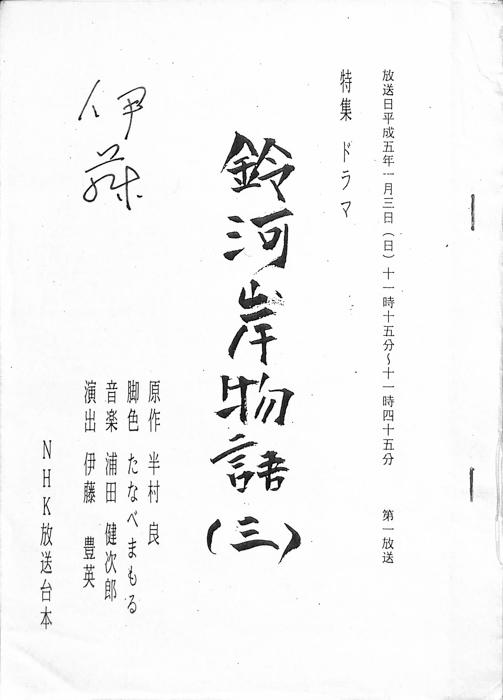 放送日平成五年一月三日（日）十一時十五分～十一時四十五分　第一放送
特集 ドラマ
鈴河岸物語（三）
原作 半村 良
脚色 たなべまもる
音楽 浦田 健次郎
演出 伊藤 豊英
伊藤
NHK放送台本